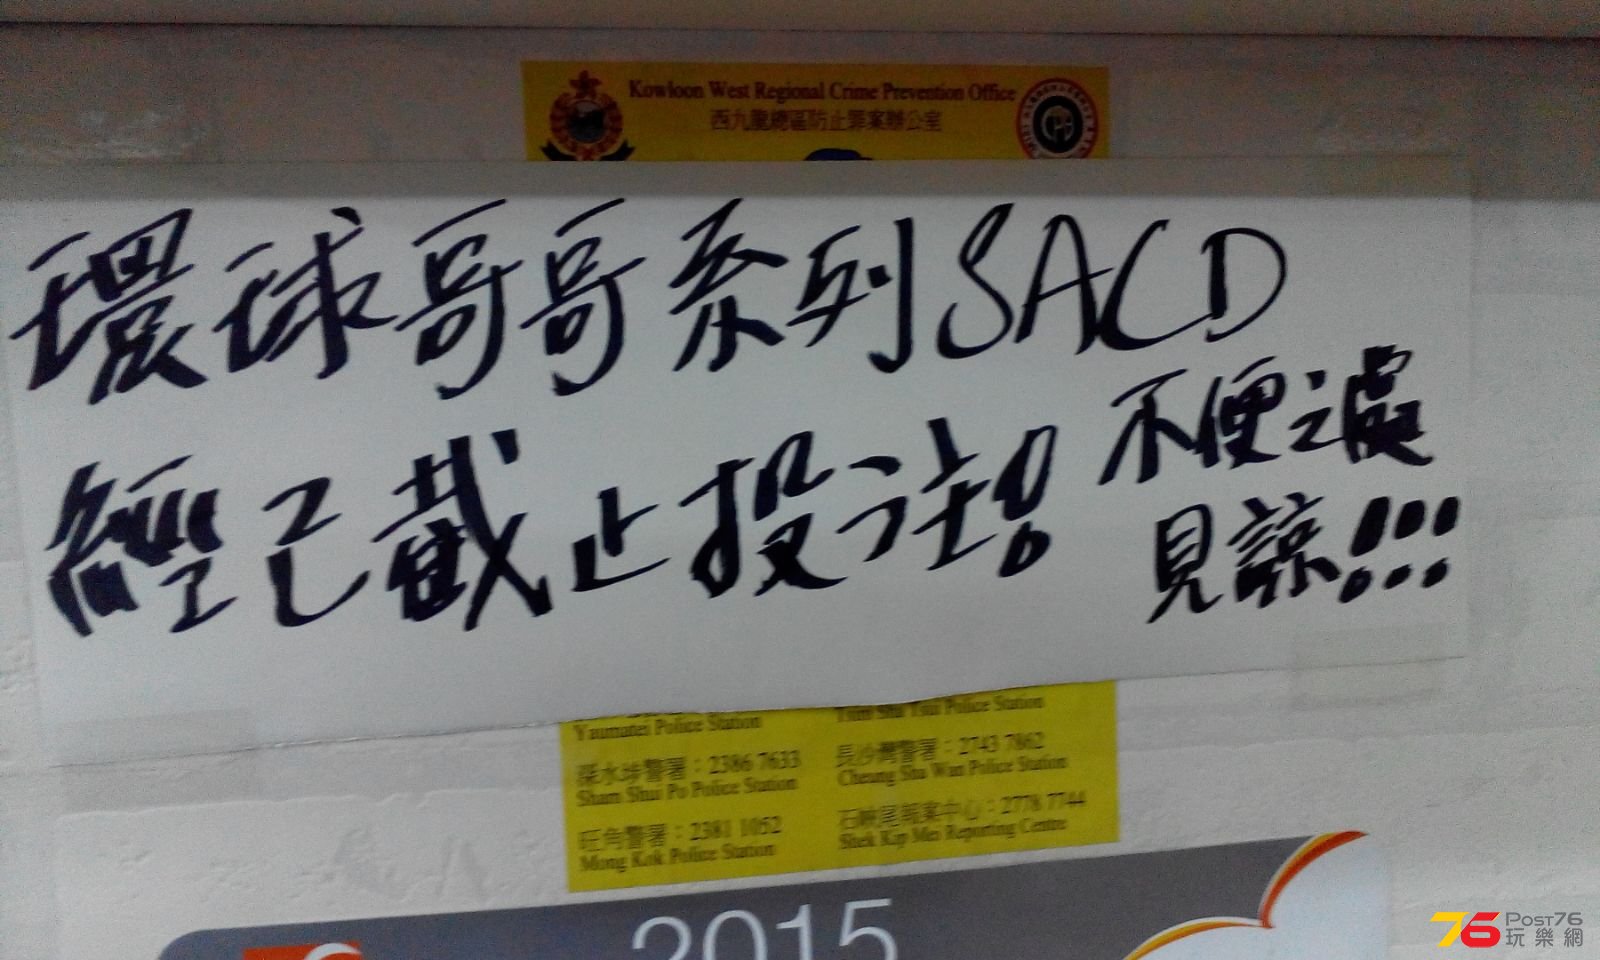 Kowloon West Regional Crime Prevention Office
西九龍總區防止罪案辦公室
環球哥哥系列SACD
經已截止投注! 不便之處
見諒!!!
Yaumatei Police Station
Tsim Sha Tsui Police Station
深水埗警署：2386 7633
Sham Shui Po Police Station
長沙灣警署：2743 7862
Cheung Sha Wan Police Station
旺角警署：2381 1052
Mong Kok Police Station
石硤尾報案中心：2778 7744
Shek Kip Mei Reporting Centre
2015
76 POST76
玩樂網